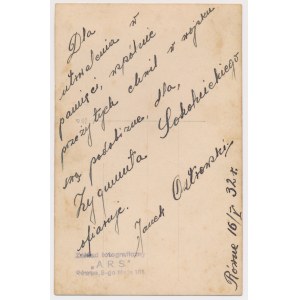 Dla
utrwalenia w
pamięci, wspólnie
przeżytych chwil w wojsku
swą podobiznę, dla,
Zygmunta Sokolnickiego
ofiaruje.
Janek Ostrowski
Równe 16/I 32 r.
Zakład fotograficzny
"ARS"